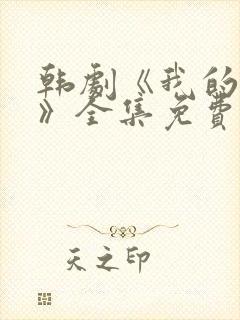 韩劇《我的
》全集免費
天之印